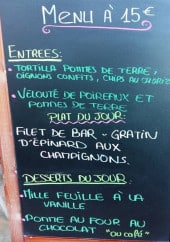 MENU À 15€
ENTREES:
• TORTILLA POMMES DE TERRE,
OIGNONS CONFITS, CHIPS AU
• VELOUTÉ DE POIREAUX ET
POMMES DE TERRE
PLAT DU JOUR:
FILET DE BAR - GRATIN
D'ÉPINARD AUX
CHAMPIGNONS.
DESSERTS DU JOUR:
• MILLE FEUILLE À LA
VANILLE
• POMME AU FOUR AU
CHOCOLAT "OU CAFÉ"